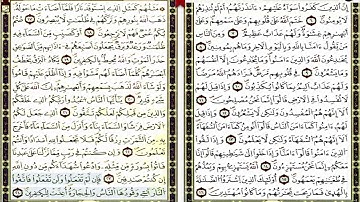 إِنَّ الَّذِينَ كَفَرُوا سَوَاءٌ عَلَيْهِمْ ءَأَنذَرْتَهُمْ أَمْ لَمْ تُنذِرْهُمْ
لَا يُؤْمِنُونَ ٦ خَتَمَ اللَّهُ عَلَىٰ قُلُوبِهِمْ وَعَلَىٰ سَمْعِهِمْ وَعَلَىٰ
أَبْصَٰرِهِمْ غِشَٰوَةٌ وَلَهُمْ عَذَابٌ عَظِيمٌ ٧ وَمِنَ النَّاسِ مَن يَقُولُ
ءَامَنَّا بِاللَّهِ وَبِالْيَوْمِ الْءَاخِرِ وَمَا هُم بِمُؤْمِنِينَ ٨ يُخَٰدِعُونَ اللَّهَ
وَالَّذِينَ ءَامَنُوا وَمَا يَخْدَعُونَ إِلَّا أَنفُسَهُمْ وَمَا يَشْعُرُونَ ٩
فِي قُلُوبِهِم مَّرَضٌ فَزَادَهُمُ اللَّهُ مَرَضًا وَلَهُمْ عَذَابٌ أَلِيمٌ بِمَا
كَانُوا يَكْذِبُونَ ١٠ وَإِذَا قِيلَ لَهُمْ لَا تُفْسِدُوا فِي الْأَرْضِ قَالُوا
إِنَّمَا نَحْنُ مُصْلِحُونَ ١١ أَلَا إِنَّهُمْ هُمُ الْمُفْسِدُونَ وَلَٰكِن لَّا
يَشْعُرُونَ ١٢ وَإِذَا قِيلَ لَهُمْ ءَامِنُوا كَمَا ءَامَنَ النَّاسُ قَالُوا
أَنُؤْمِنُ كَمَا ءَامَنَ السُّفَهَاءُ أَلَا إِنَّهُمْ هُمُ السُّفَهَاءُ وَلَٰكِن
لَّا يَعْلَمُونَ ١٣ وَإِذَا لَقُوا الَّذِينَ ءَامَنُوا قَالُوا ءَامَنَّا
وَإِذَا خَلَوْا إِلَىٰ شَيَٰطِينِهِمْ قَالُوا إِنَّا مَعَكُمْ إِنَّمَا نَحْنُ
مُسْتَهْزِءُونَ ١٤ اللَّهُ يَسْتَهْزِئُ بِهِمْ وَيَمُدُّهُمْ فِي طُغْيَٰنِهِمْ
يَعْمَهُونَ ١٥ أُولَٰئِكَ الَّذِينَ اشْتَرَوُا الضَّلَٰلَةَ
بِالْهُدَىٰ فَمَا رَبِحَت تِّجَٰرَتُهُمْ وَمَا كَانُوا مُهْتَدِينَ ١٦
مَثَلُهُمْ كَمَثَلِ الَّذِي اسْتَوْقَدَ نَارًا فَلَمَّا أَضَاءَتْ مَا حَوْلَهُ
ذَهَبَ اللَّهُ بِنُورِهِمْ وَتَرَكَهُمْ فِي ظُلُمَٰتٍ لَّا يُبْصِرُونَ ١٧
صُمٌّ بُكْمٌ عُمْيٌ فَهُمْ لَا يَرْجِعُونَ ١٨ أَوْ كَصَيِّبٍ مِّنَ السَّمَاءِ فِيهِ
ظُلُمَٰتٌ وَرَعْدٌ وَبَرْقٌ يَجْعَلُونَ أَصَٰبِعَهُمْ فِي ءَاذَانِهِم مِّنَ
الصَّوَٰعِقِ حَذَرَ الْمَوْتِ وَاللَّهُ مُحِيطٌ بِالْكَٰفِرِينَ ١٩ يَكَادُ الْبَرْقُ
يَخْطَفُ أَبْصَٰرَهُمْ كُلَّمَا أَضَاءَ لَهُم مَّشَوْا فِيهِ وَإِذَا أَظْلَمَ عَلَيْهِمْ
قَامُوا وَلَوْ شَاءَ اللَّهُ لَذَهَبَ بِسَمْعِهِمْ وَأَبْصَٰرِهِمْ إِنَّ اللَّهَ عَلَىٰ
كُلِّ شَيْءٍ قَدِيرٌ ٢٠ يَٰأَيُّهَا النَّاسُ اعْبُدُوا رَبَّكُمُ الَّذِي خَلَقَكُمْ
وَالَّذِينَ مِن قَبْلِكُمْ لَعَلَّكُمْ تَتَّقُونَ ٢١ الَّذِي جَعَلَ لَكُمُ
الْأَرْضَ فِرَٰشًا وَالسَّمَاءَ بِنَاءً وَأَنزَلَ مِنَ السَّمَاءِ مَاءً فَأَخْرَجَ
بِهِ مِنَ الثَّمَرَٰتِ رِزْقًا لَّكُمْ فَلَا تَجْعَلُوا لِلَّهِ أَندَادًا وَأَنتُمْ
تَعْلَمُونَ ٢٢ وَإِن كُنتُمْ فِي رَيْبٍ مِّمَّا نَزَّلْنَا عَلَىٰ عَبْدِنَا
فَأْتُوا بِسُورَةٍ مِّن مِّثْلِهِ وَادْعُوا شُهَدَاءَكُم مِّن دُونِ اللَّهِ
إِن كُنتُمْ صَٰدِقِينَ ٢٣ فَإِن لَّمْ تَفْعَلُوا وَلَن تَفْعَلُوا فَاتَّقُوا
النَّارَ الَّتِي وَقُودُهَا النَّاسُ وَالْحِجَارَةُ أُعِدَّتْ لِلْكَٰفِرِينَ ٢٤